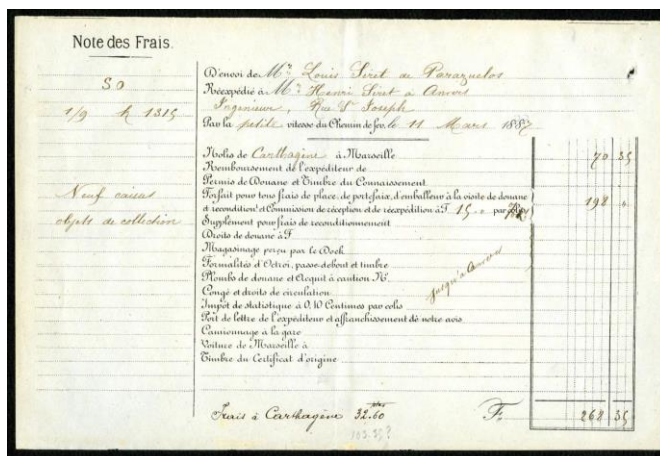 Note des Frais.
SO
1/9 k 1315
Neuf caisses
objets de collection
D'envoi de Mr. Louis Siret de Parazuelos
Réexpédié à Mr. Henri Siret à Anvers
Ingénieur, Rue St Joseph
Par la petite vitesse du Chemin de fer, le 11 Mars 1887
Nolis de Carthagène à Marseille 70 35
Remboursement de l'expéditeur de
Permis de Douane et Timbre du Connaissement
Forfait pour tous frais de place, de portefaix, d'emballeur à la visite de douane
et recondition't Commission de réception et de réexpédition à F. 15 " par 192 "
Supplément pour frais de reconditionnement
Droits de douane à F.
Magasinage perçu par le Dock
Formalités d'Octroi, passe-debout et timbre
Plombs de douane et Acquit à caution No.
Congé et droits de circulation
Impôt de statistique à 0,10 Centimes par colis
Port de lettre de l'expéditeur et affranchissement de notre avis
Camionnage à la gare
Voiture de Marseille à
Timbre du Certificat d'origine
jusqu'à Anvers
Frais à Carthagène 32.60 F. 262 35